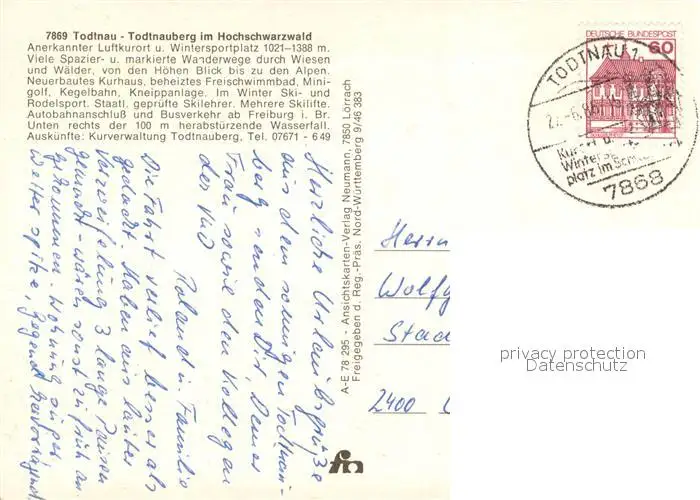 7869 Todtnau - Todtnauberg im Hochschwarzwald
Anerkannter Luftkurort u. Wintersportplatz 1021–1388 m.
Viele Spazier- u. markierte Wanderwege durch Wiesen
und Wälder, von den Höhen Blick bis zu den Alpen.
Neuerbautes Kurhaus, beheiztes Freischwimmbad, Mini-
golf, Kegelbahn, Kneippanlage. Im Winter Ski- und
Rodelsport. Staatl. geprüfte Skilehrer. Mehrere Skilifte.
Autobahnanschluß und Busverkehr ab Freiburg i. Br.
Unten rechts der 100 m herabstürzende Wasserfall.
Auskünfte: Kurverwaltung Todtnauberg, Tel. 07671 - 649
Herzliche Urlaubsgrüße
aus dem sonnigen Todtnau-
berg sendet Dir, Deiner
Frau sowie den Kollegen
der
Roland u. Familie
Die Fahrt verlief besser als
gedacht. Haben aus lauter
Verzweiflung 3 lange Pausen
gemacht - wären sonst zu früh an-
gekommen. Wohnung super
Wetter spitze, Gegend hervorragend
A-E 78 295 - Ansichtskarten-Verlag Neumann, 7850 Lörrach
Freigegeben d. Reg.-Präs. Nord-Württemberg 9/46 383
DEUTSCHE BUNDESPOST
60
TODTNAU 1
Kurort u.
Winter
platz im Sch
7868
Herrn
Wolfg
Stad
2400
privacy protection
Datenschutz